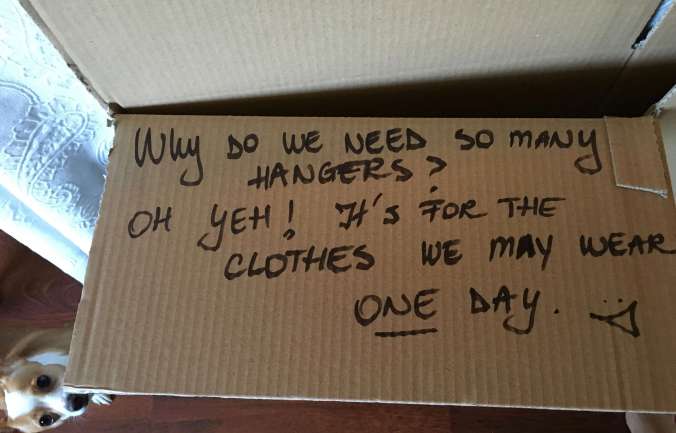 Why DO WE NEED SO MANY
HANGERS?
OH YEH! It's FOR THE
CLOTHES WE MAY WEAR
ONE DAY. :)